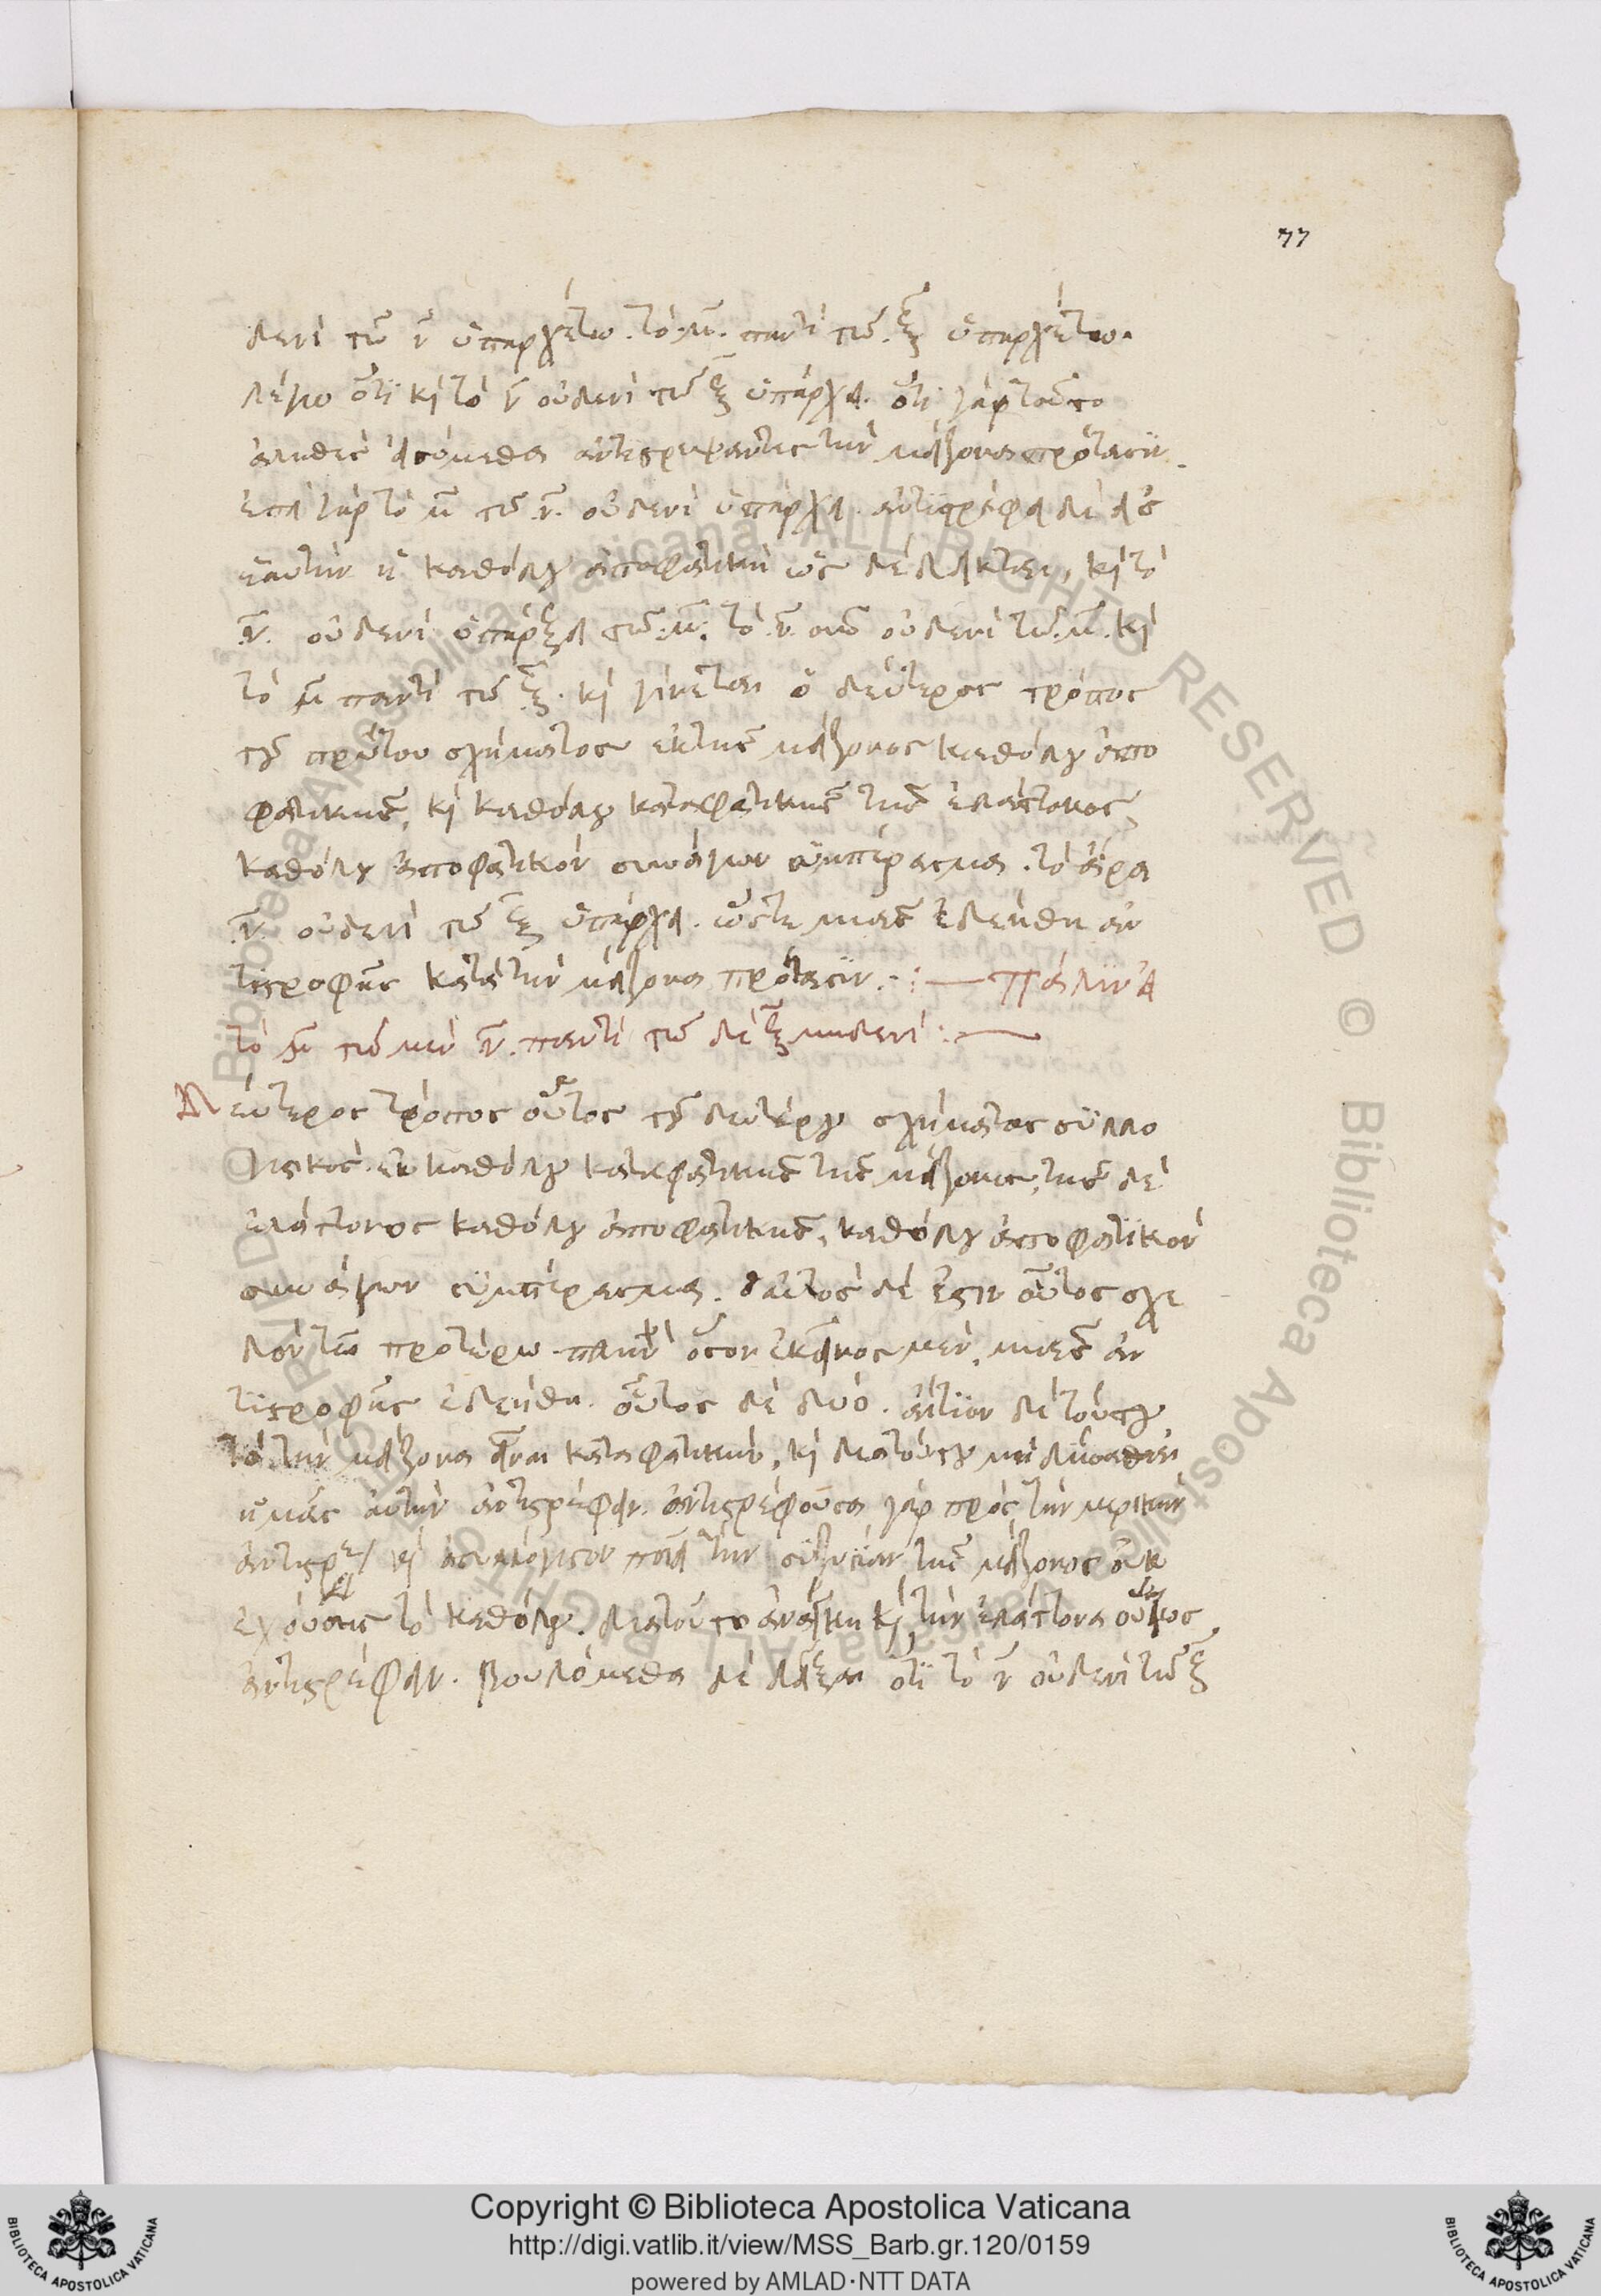 77
δενὶ τῶ ν̄ ὑπαρχέτω. τὸ .μ̄. παντὶ τῶ .ξ̄ ὑπαρχέτω.
λέγω ὅτι κὶ τὸ ν̄ οὐδενὶ τῶ ξ̄ ὑπάρχει. ὅτι γὰρ τοῦτο
ἀληθὲς εἰσόμεθα ἀντιστρέψαντες τὴν μείζονα πρότασιν.
ἐπεὶ γὰρ τὸ μ̄ τῶ .ν̄. οὐδενὶ ὑπάρχει. ἀντιστρέφει δὲ εἰς
ἑαυτὴν ἡ καθόλου ἀποφατικὴ ὡς δέδεικται, κὶ τὸ
.ν̄. οὐδενὶ ὑπάρξει τῶ .μ̄. τὸ .ν̄. οὖν οὐδενὶ τῶ .μ̄. κὶ
τὸ μ̄ παντὶ τῶ .ξ̄. κὶ γίνεται ὁ δεύτερος τρόπος
τοῦ πρώτου σχήματος ἐκ τῆς μείζονος καθόλου ἀπο
φατικῆς, κὶ καθόλου καταφατικῆς τῆς ἐλάττονος,
καθόλου ἀποφατικὸν συνάγων συμπέρασμα. τὸ ἄρα
.ν̄. οὐδενὶ τῶ ξ̄ ὑπάρχει. ὥστε μιᾶς ἐδεήθη ἀν
τιστροφῆς κατὰ τὴν μείζονα πρότασιν. .:— Πάλιν εἰ
τὸ μ̄ τῶ μὲν ν̄. παντὶ τῶ δὲ ξ̄ μηδενὶ :—
Δεύτερος τρόπος οὗτος τοῦ δευτέρου σχήματος συλλο
γιστικὸς. ἐκ καθόλου καταφατικῆς τῆς μείζονος, τῆς δὲ
ἐλάττονος καθόλου ἀποφατικῆς, καθόλου ἀποφατικὸν
συνάγων συμπέρασμα. ὁ αὐτὸς δέ ἐστιν οὗτος σχε
δὸν τῶ προτέρω πλὴν ὅσον ἐκεῖνος μὲν, μιᾶς ἀν
τιστροφῆς ἐδεήθη. οὗτος δὲ δύο. αἴτιον δὲ τούτου
τὸ τὴν μείζονα εἶναι καταφατικὴν, κὶ διατοῦτο μὴ δύνασθαι
ἡμᾶς αὐτὴν ἀντιστρέφειν. ἀντιστρέφουσα γὰρ πρὸς τὴν μερικὴν
ἀντιστρέ/ κὶ ἀσυλλόγιστον ποιεῖ τὴν συζυγίαν τῆς μείζονος οὐκ
ἐχούσης τὸ καθόλου. διατοῦτο ἀνάγκη κὶ τὴν ἐλάττονα οὖσαν
ἀντιστρέφειν. βουλόμεθα δὲ δεῖξαι ὅτι τὸ ν̄ οὐδενὶ τῶ ξ̄
Copyright © Biblioteca Apostolica Vaticana
http://digi.vatlib.it/view/MSS_Barb.gr.120/0159
powered by AMLAD·NTT DATA